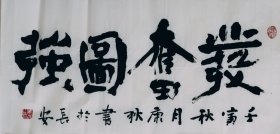 發奮圖強
壬寅秋月康秋書於長安